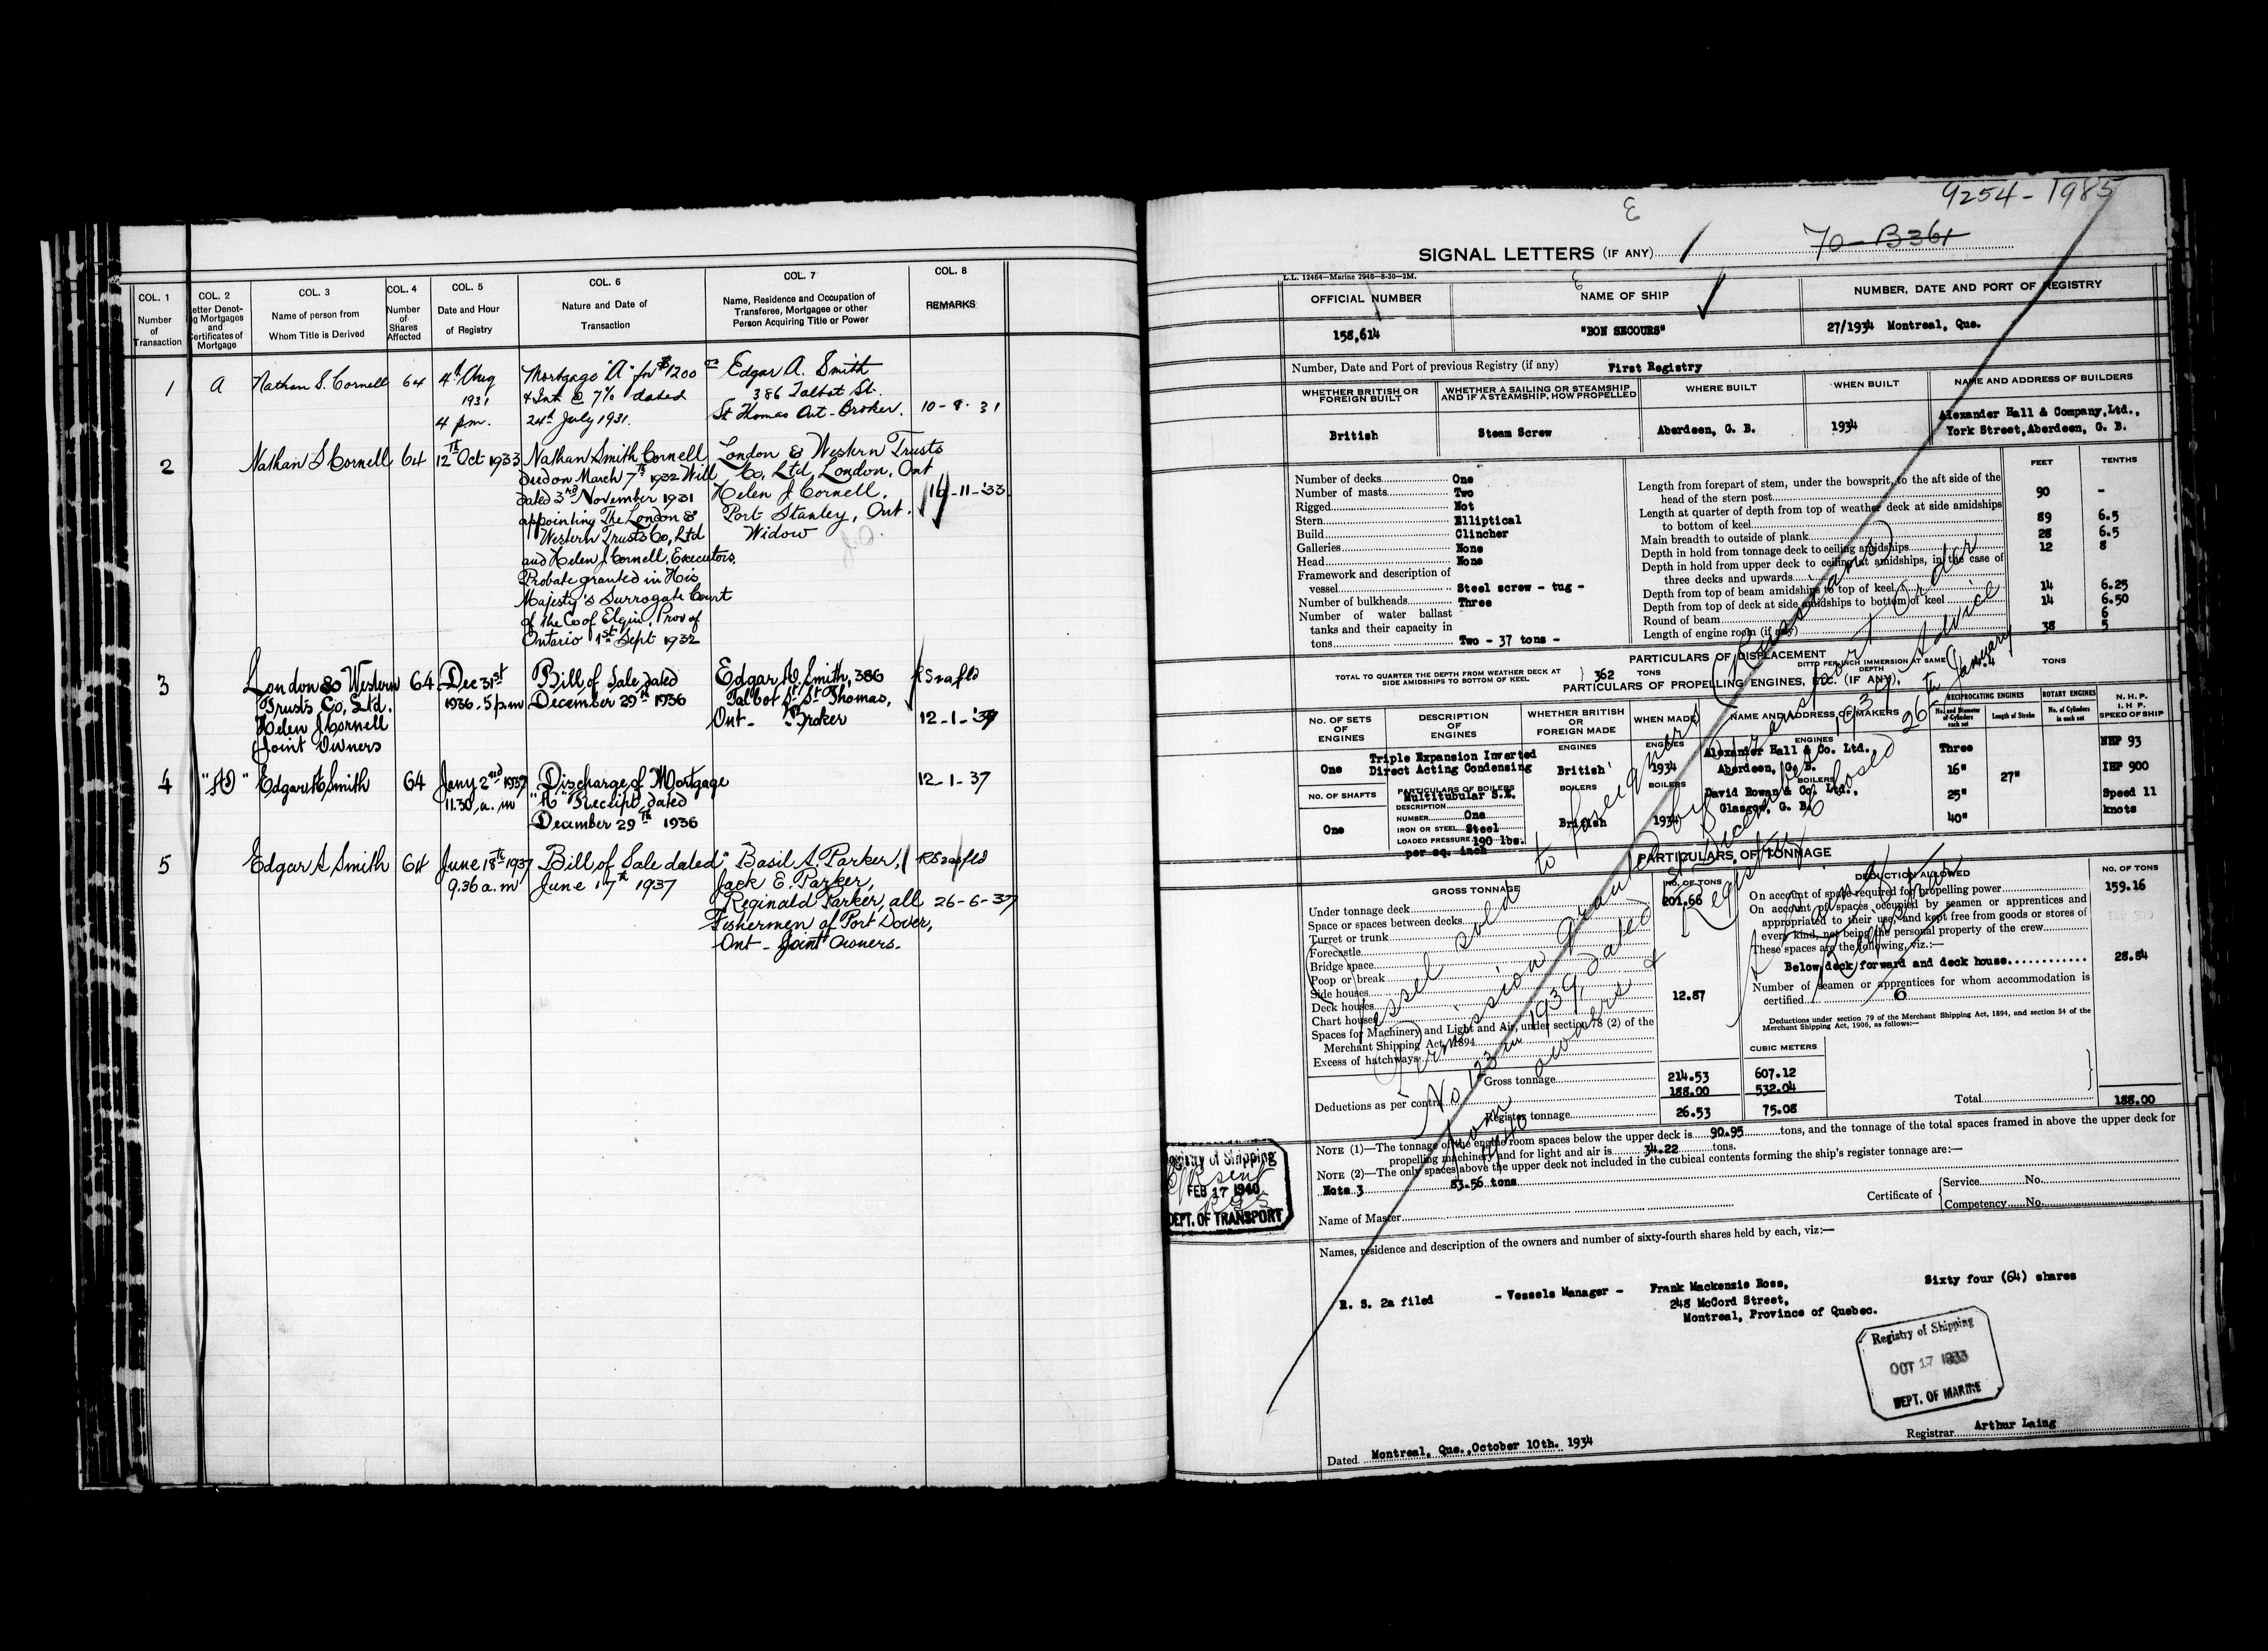 COL. 1
Number
of
Transaction
COL. 2
etter Denot-
ng Mortgages
and
Certificates of
Mortgage
COL. 3
Name of person from
Whom Title is Derived
COL. 4
Number
of
Shares
Affected
COL. 5
Date and Hour
of Registry
COL. 6
Nature and Date of
Transaction
COL. 7
Name, Residence and Occupation of
Transferee, Mortgagee or other
Person Acquiring Title or Power
COL. 8
REMARKS
1 A Nathan S. Cornell 64 4th Aug
1931
4 pm.
Mortgage "A" for $1200 00
& Int. @ 7% dated
24th July 1931.
Edgar A. Smith
386 Talbot St.
St Thomas Ont - Broker.
10-8-31
2 Nathan S Cornell 64 12th Oct 1933
Nathan Smith Cornell
died on March 7th 1932 Will
dated 3rd November 1931
appointing The London &
Western Trusts Co, Ltd
and Helen J Cornell, Executors.
Probate granted in His
Majesty's Surrogate Court
of the Co of Elgin. Prov of
Ontario 1st Sept 1932
London & Western Trusts
Co, Ltd, London, Ont
Helen J Cornell,
Port Stanley, Ont.
Widow
16-11-'33
3 London & Western
Trusts Co, Ltd.
Helen J Cornell
Joint Owners
64 Dec 31st
1936. 5 p.m
Bill of Sale dated
December 29th 1936
Edgar A. Smith, 386
Talbot St, St Thomas,
Ont - Broker
12-1-'37
4 "A" Edgar A Smith 64 Jany 2nd 1937
11.30, a.m
Discharge of Mortgage
"A" Receipt dated
December 29th 1936
12-1-37
5 Edgar A Smith 64 June 18th 1937
9.36 a.m
Bill of Sale dated
June 17th 1937
Basil A. Parker,
Jack E. Parker,
Reginald Parker, all
Fishermen of Port Dover,
Ont - Joint Owners.
26-6-37
9254-1985
SIGNAL LETTERS (IF ANY) 70-B361
L.L. 12464—Marine 2948—8-30—2M.
OFFICIAL NUMBER
158,614
NAME OF SHIP
"BON SECOURS"
NUMBER, DATE AND PORT OF REGISTRY
27/1934 Montreal, Que.
Number, Date and Port of previous Registry (if any) First Registry
WHETHER BRITISH OR
FOREIGN BUILT
British
WHETHER A SAILING OR STEAMSHIP
AND IF A STEAMSHIP, HOW PROPELLED
Steam Screw
WHERE BUILT
Aberdeen, G. B.
WHEN BUILT
1934
NAME AND ADDRESS OF BUILDERS
Alexander Hall & Company,Ltd.,
York Street,Aberdeen, G. B.
Number of decks One
Number of masts Two
Rigged Not
Stern Elliptical
Build Clincher
Galleries None
Head None
Framework and description of
vessel Steel screw - tug -
Number of bulkheads Three
Number of water ballast
tanks and their capacity in
tons Two - 37 tons -
FEET TENTHS
Length from forepart of stem, under the bowsprit, to the aft side of the
head of the stern post 90 -
Length at quarter of depth from top of weather deck at side amidships
to bottom of keel 89 6.5
Main breadth to outside of plank 28 6.5
Depth in hold from tonnage deck to ceiling amidships 12 8
Depth in hold from upper deck to ceiling at amidships, in the case of
three decks and upwards
Depth from top of beam amidships to top of keel 14 6.25
Depth from top of deck at side amidships to bottom of keel 14 6.50
Round of beam 6
Length of engine room (if any) 38 5
PARTICULARS OF DISPLACEMENT
TOTAL TO QUARTER THE DEPTH FROM WEATHER DECK AT
SIDE AMIDSHIPS TO BOTTOM OF KEEL
362 TONS
DITTO PER INCH IMMERSION AT SAME
DEPTH
TONS
PARTICULARS OF PROPELLING ENGINES, ETC. (IF ANY).
NO. OF SETS
OF
ENGINES
One
DESCRIPTION
OF
ENGINES
Triple Expansion Inverted
Direct Acting Condensing
WHETHER BRITISH
OR
FOREIGN MADE
ENGINES
British
WHEN MADE
ENGINES
1934
NAME AND ADDRESS OF MAKERS
ENGINES
Alexander Hall & Co. Ltd.
Aberdeen, G. B.
RECIPROCATING ENGINES
No. and Diameter
of Cylinders
each set
Length of Stroke
Three
16"
25"
40"
27"
ROTARY ENGINES
No. of Cylinders
in each set
N. H. P.
I. H. P.
SPEED OF SHIP
NHP 93
IHP 900
Speed 11
knots
NO. OF SHAFTS
One
PARTICULARS OF BOILERS
Multitubular S.E.
DESCRIPTION
NUMBER One
IRON OR STEEL Steel
LOADED PRESSURE 190 lbs.
per sq. inch
BOILERS
British
BOILERS
1934
BOILERS
David Rowan & Co. Ltd.,
Glasgow, G. B.
PARTICULARS OF TONNAGE
GROSS TONNAGE
NO. OF TONS
Under tonnage deck 201.66
Space or spaces between decks
Turret or trunk
Forecastle
Bridge space
Poop or break
Side houses
Deck houses 12.87
Chart house
Spaces for Machinery and Light and Air, under section 78 (2) of the
Merchant Shipping Act, 1894
Excess of hatchways
Gross tonnage 214.53 607.12
Deductions as per contra 188.00 532.04
Register tonnage 26.53 75.08
CUBIC METERS
DEDUCTION ALLOWED
NO. OF TONS
On account of space required for propelling power 159.16
On account of spaces occupied by seamen or apprentices and
appropriated to their use, and kept free from goods or stores of
every kind, not being the personal property of the crew
These spaces are the following, viz.:—
Below deck forward and deck house 28.84
Number of seamen or apprentices for whom accommodation is
certified 6
Deductions under section 79 of the Merchant Shipping Act, 1894, and section 54 of the
Merchant Shipping Act, 1906, as follows:—
Total 188.00
Vessel sold to foreigners (
Permission granted by Transport Order
No 123 in 1939, dated 5th December 1939 Advice
from owners & Registry closed 26th January
1940
NOTE (1)—The tonnage of the engine room spaces below the upper deck is 90.95 tons, and the tonnage of the total spaces framed in above the upper deck for
propelling machinery and for light and air is 34.22 tons.
NOTE (2)—The only spaces above the upper deck not included in the cubical contents forming the ship's register tonnage are:—
Note 3 83.56 tons
Name of Master
Certificate of Service No.
Competency No.
Registry of Shipping
FEB 17 1940
DEPT. OF TRANSPORT
Names, residence and description of the owners and number of sixty-fourth shares held by each, viz:—
R. S. 2a filed - Vessels Manager - Frank Mackenzie Ross,
248 McCord Street,
Montreal, Province of Quebec.
Sixty four (64) shares
Registry of Shipping
OCT 17
DEPT. OF MARINE
Dated Montreal, Que.,October 10th. 1934
Registrar Arthur Laing